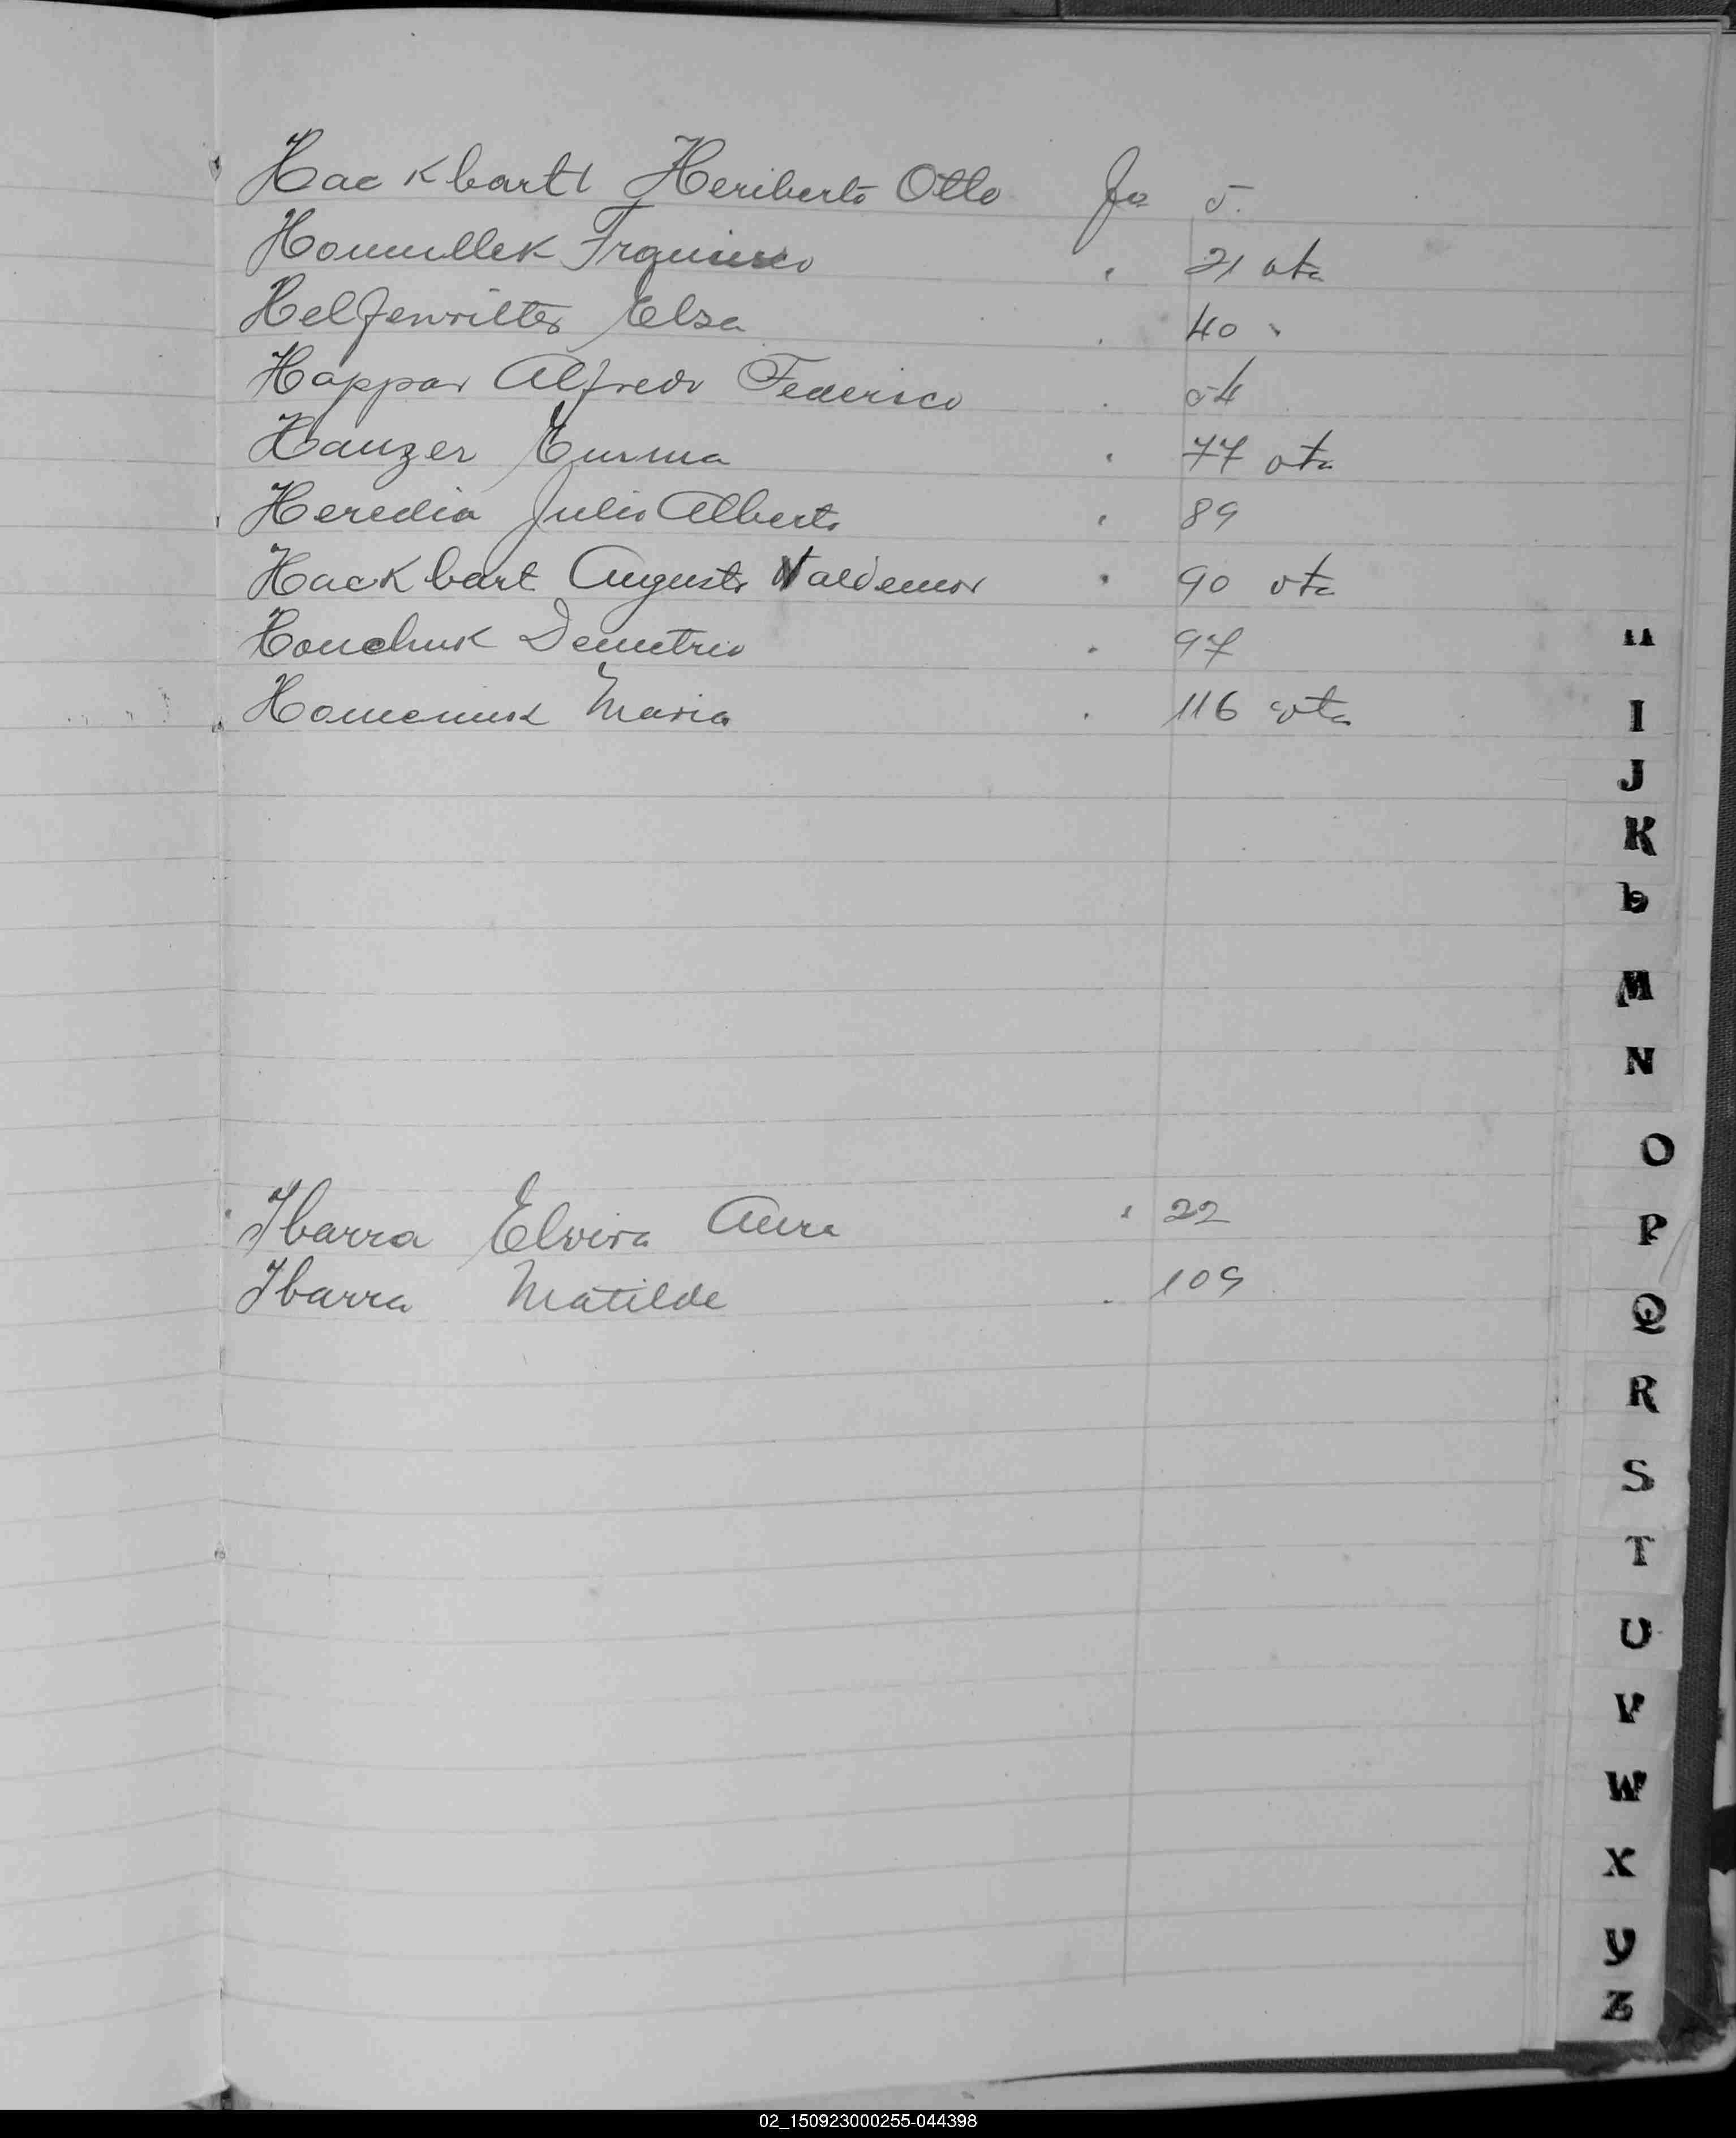 Hackbartt Heriberto Otto Fo 5.
Homullek Francisco " 21 vta
Helfenritter Elsa . 40 "
Happar Alfredo Federico . 54
Hauzer Emma " 77 vta
Heredia Julio Alberto " 89
Hackbart Augusto Valdemar " 90 vta
Honchuk Demetrio . 97
Homeniuk Maria . 116 vta
Ibarra Elvira Aura " 22
Ibarra Matilde . 109
I
J
K
M
N
O
P
Q
R
S
T
U
V
W
X
Y
Z
02_150923000255-044398